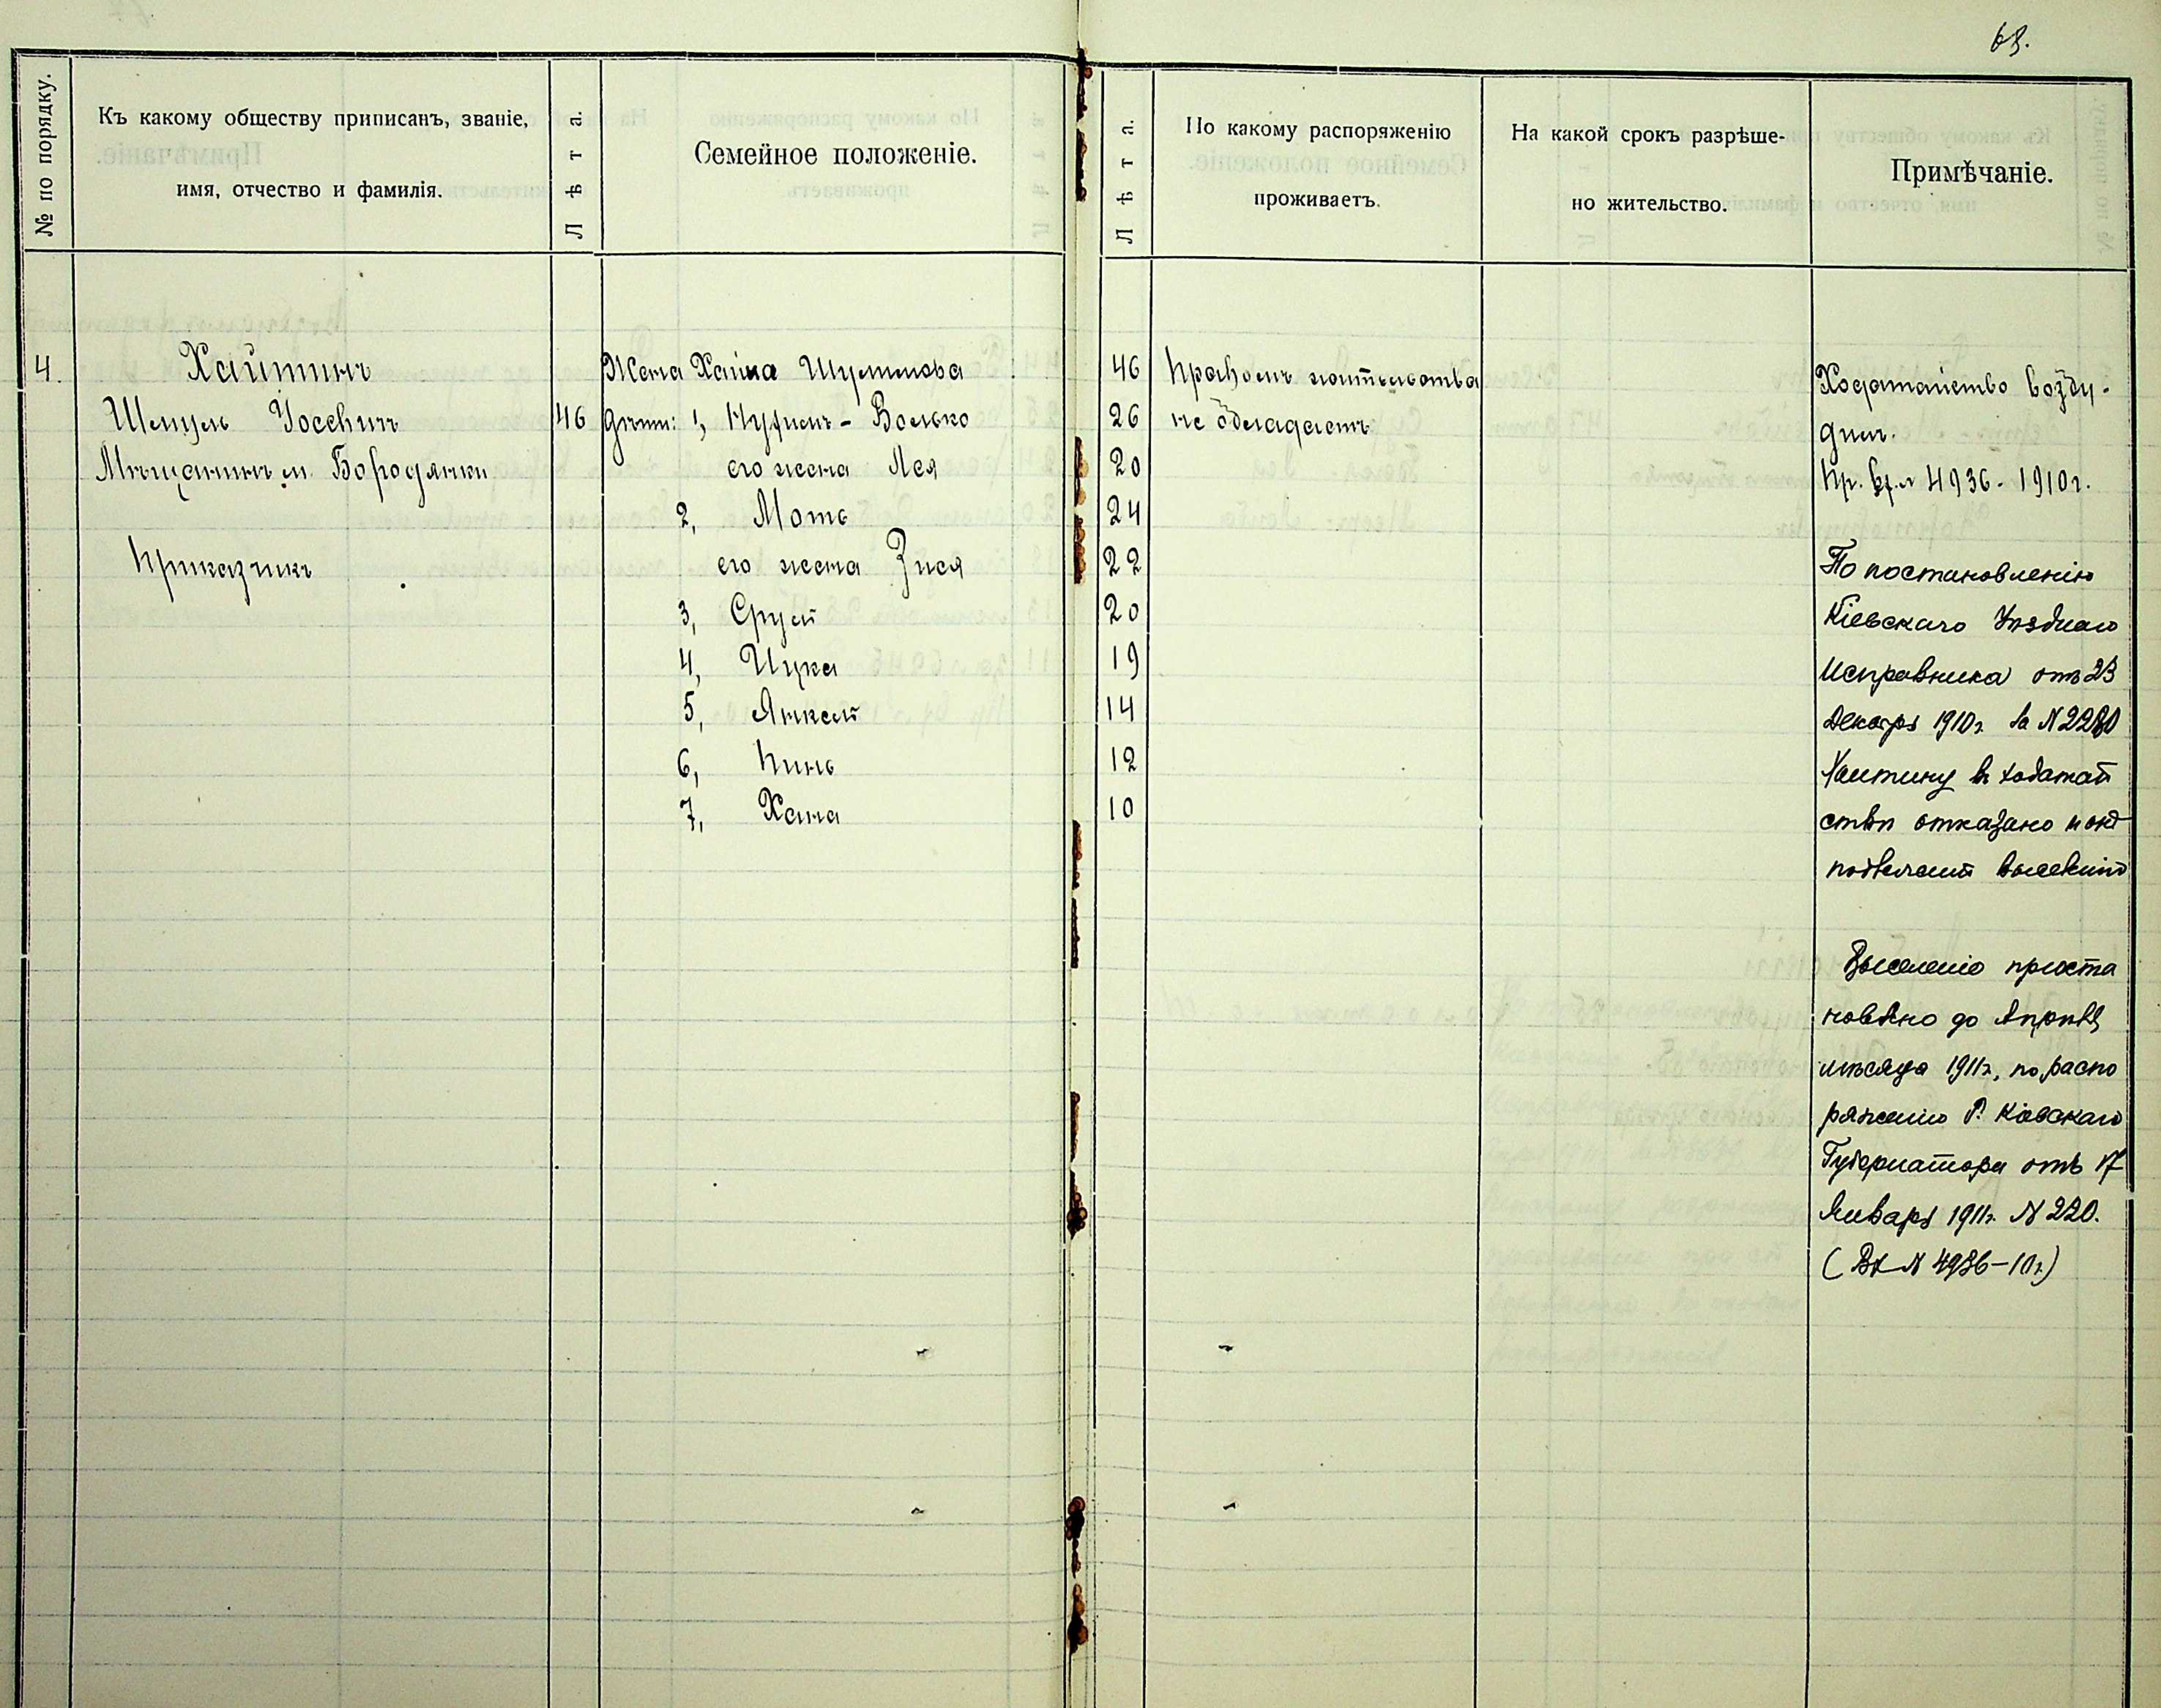 63.
№ по порядку.
Къ какому обществу приписанъ, званіе,
имя, отчество и фамилія.
Лѣта.
Семейное положеніе.
Лѣта.
По какому распоряженію
проживаетъ.
На какой срокъ разрѣше-
но жительство.
Примѣчаніе.
4.
Хайтинъ
Шмуль Іосевичъ
46
Мѣщанинъ м. Бородянки
Приказчикъ
Жена Хайка Шулимова 46
Дѣти: 1, Нухимъ - Волько 26
его жена Лея 20
2, Моть 24
его жена Зися 22
3, Сруль 20
4, Ицка 19
5, Янкель 14
6, Пинь 12
7, Хана 10
Правомъ жительства
не обладаетъ
Ходатайство возбу-
жден.
Пр. вх. № 4936 - 1910 г.
По постановленію
Кіевскаго Уѣзднаго
Исправника отъ 23
Декабря 1910 г. за № 2280
Хаитину въ ходатай
ствѣ отказано и онъ
подлежитъ выселенію
Выселеніе приоста
новлено до Апрѣля
мѣсяца 1911 г., по распо
ряженію Г. Кіевскаго
Губернатора отъ 17
Января 1911 г. № 220.
(Вх № 4936-10 г.)